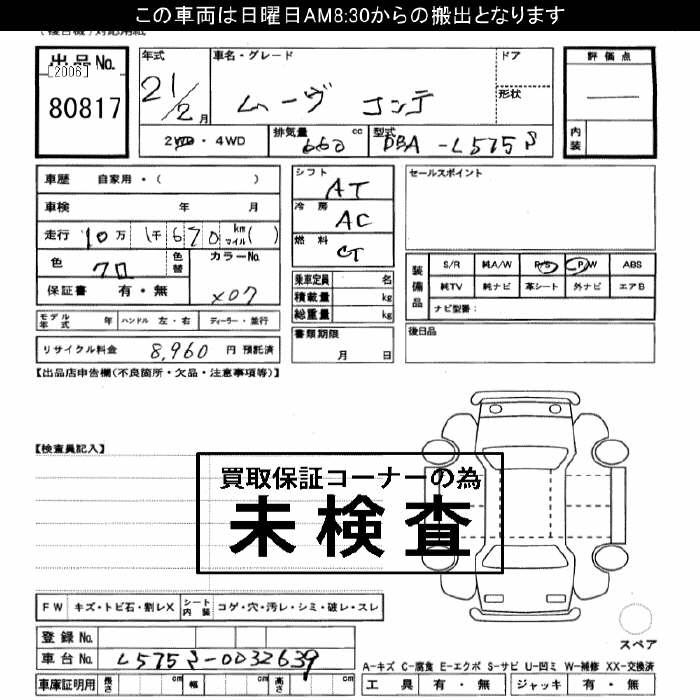 この車両は日曜日AM8:30からの搬出となります
出品No.
[2006]
80817
年式
21/2月
車名・グレード
ムーヴ コンテ
ドア
形状
評価点
—
内装
2WD・4WD
排気量 660 cc
型式 DBA-L575S
車歴 自家用・( )
車検 年 月
走行 10万 1千 670 km マイル( )
色 クロ
色替
カラーNo. X07
保証書 有・無
シフト AT
冷房 AC
燃料
乗車定員 名
積載量 kg
総重量 kg
書類期限 月 日
セールスポイント
装備品
S/R 純A/W P/S P/W ABS
純TV 純ナビ 革シート 外ナビ エアB
ナビ型番:
後日品
モデル年式 年 ハンドル 左・右 ディーラー・並行
リサイクル料金 8,960 円 預託済
【出品店申告欄(不良箇所・欠品・注意事項等)】
【検査員記入】
買取保証コーナーの為
未検査
FW キズ・トビ石・割レX シート内装 コゲ・穴・汚レ・シミ・破レ・スレ
登録No.
車台No. L575S-0032639
車庫証明用 長さ cm 幅 cm 高さ cm
スペア
A-キズ C-腐食 E-エクボ S-サビ U-凹ミ W-補修 XX-交換済
工具 有・無 ジャッキ 有・無